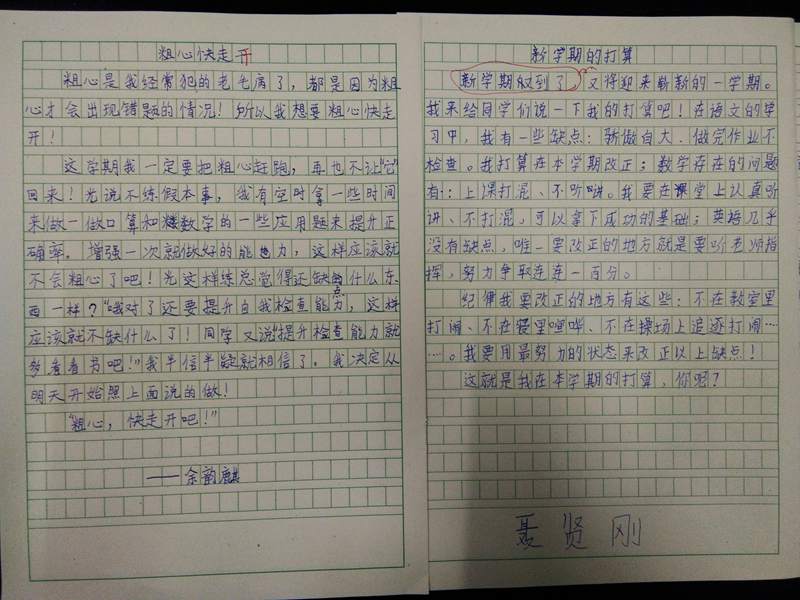 粗心快走开
粗心是我经常犯的老毛病了，都是因为粗
心才会出现错题的情况！所以我想要粗心快走
开！
这学期我一定要把粗心赶跑，再也不让“它”
回来！光说不练假本事，我有空时拿一些时间
来做一做口算和数学的一些应用题来提升正
确率。增强一次就做好的能力，这样应该就
不会粗心了吧！光这样练总觉得还缺点什么东
西一样？“哦对了还要提升自我检查能力，这样
应该就不缺什么了！同学又说“提升检查能力就
多看看书吧！”我半信半疑就相信了。我决定从
明天开始照上面说的做！
“粗心，快走开吧！”
——余韵麒
新学期的打算
新学期到了，又将迎来崭新的一学期。
我来给同学们说一下我的打算吧！在语文的学
习中，我有一些缺点：骄傲自大、做完作业不
检查。我打算在本学期改正；数学存在的问题
有：上课打混、不听讲。我要在课堂上认真听
讲、不打混，可以拿下成功的基础；英语几乎
没有缺点，唯一要改正的地方就是要听老师指
挥，努力争取连连一百分。
纪律我要改正的地方有这些：不在教室里
打闹、不在寝里喧哗、不在操场上追逐打闹……
……。我要用最努力的状态来改正以上缺点！
这就是我在本学期的打算，你呢？
聂贤刚